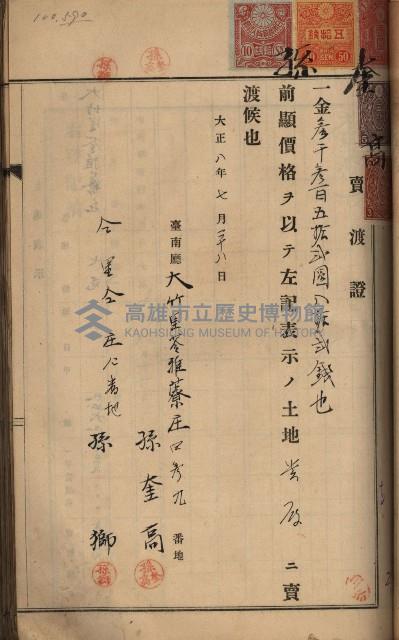 100.590
賣渡證
一金參千參百五拾貳圓八拾貳錢也
前顯價格ヲ以テ左記表示ノ土地貴殿ニ賣
渡候也
大正八年七月二十八日
臺南廳大竹里苓雅藔庄四參九番地
孫奎高
仝里仝庄仁番地
孫獅
高雄市立歷史博物館
KAOHSIUNG MUSEUM OF HISTORY